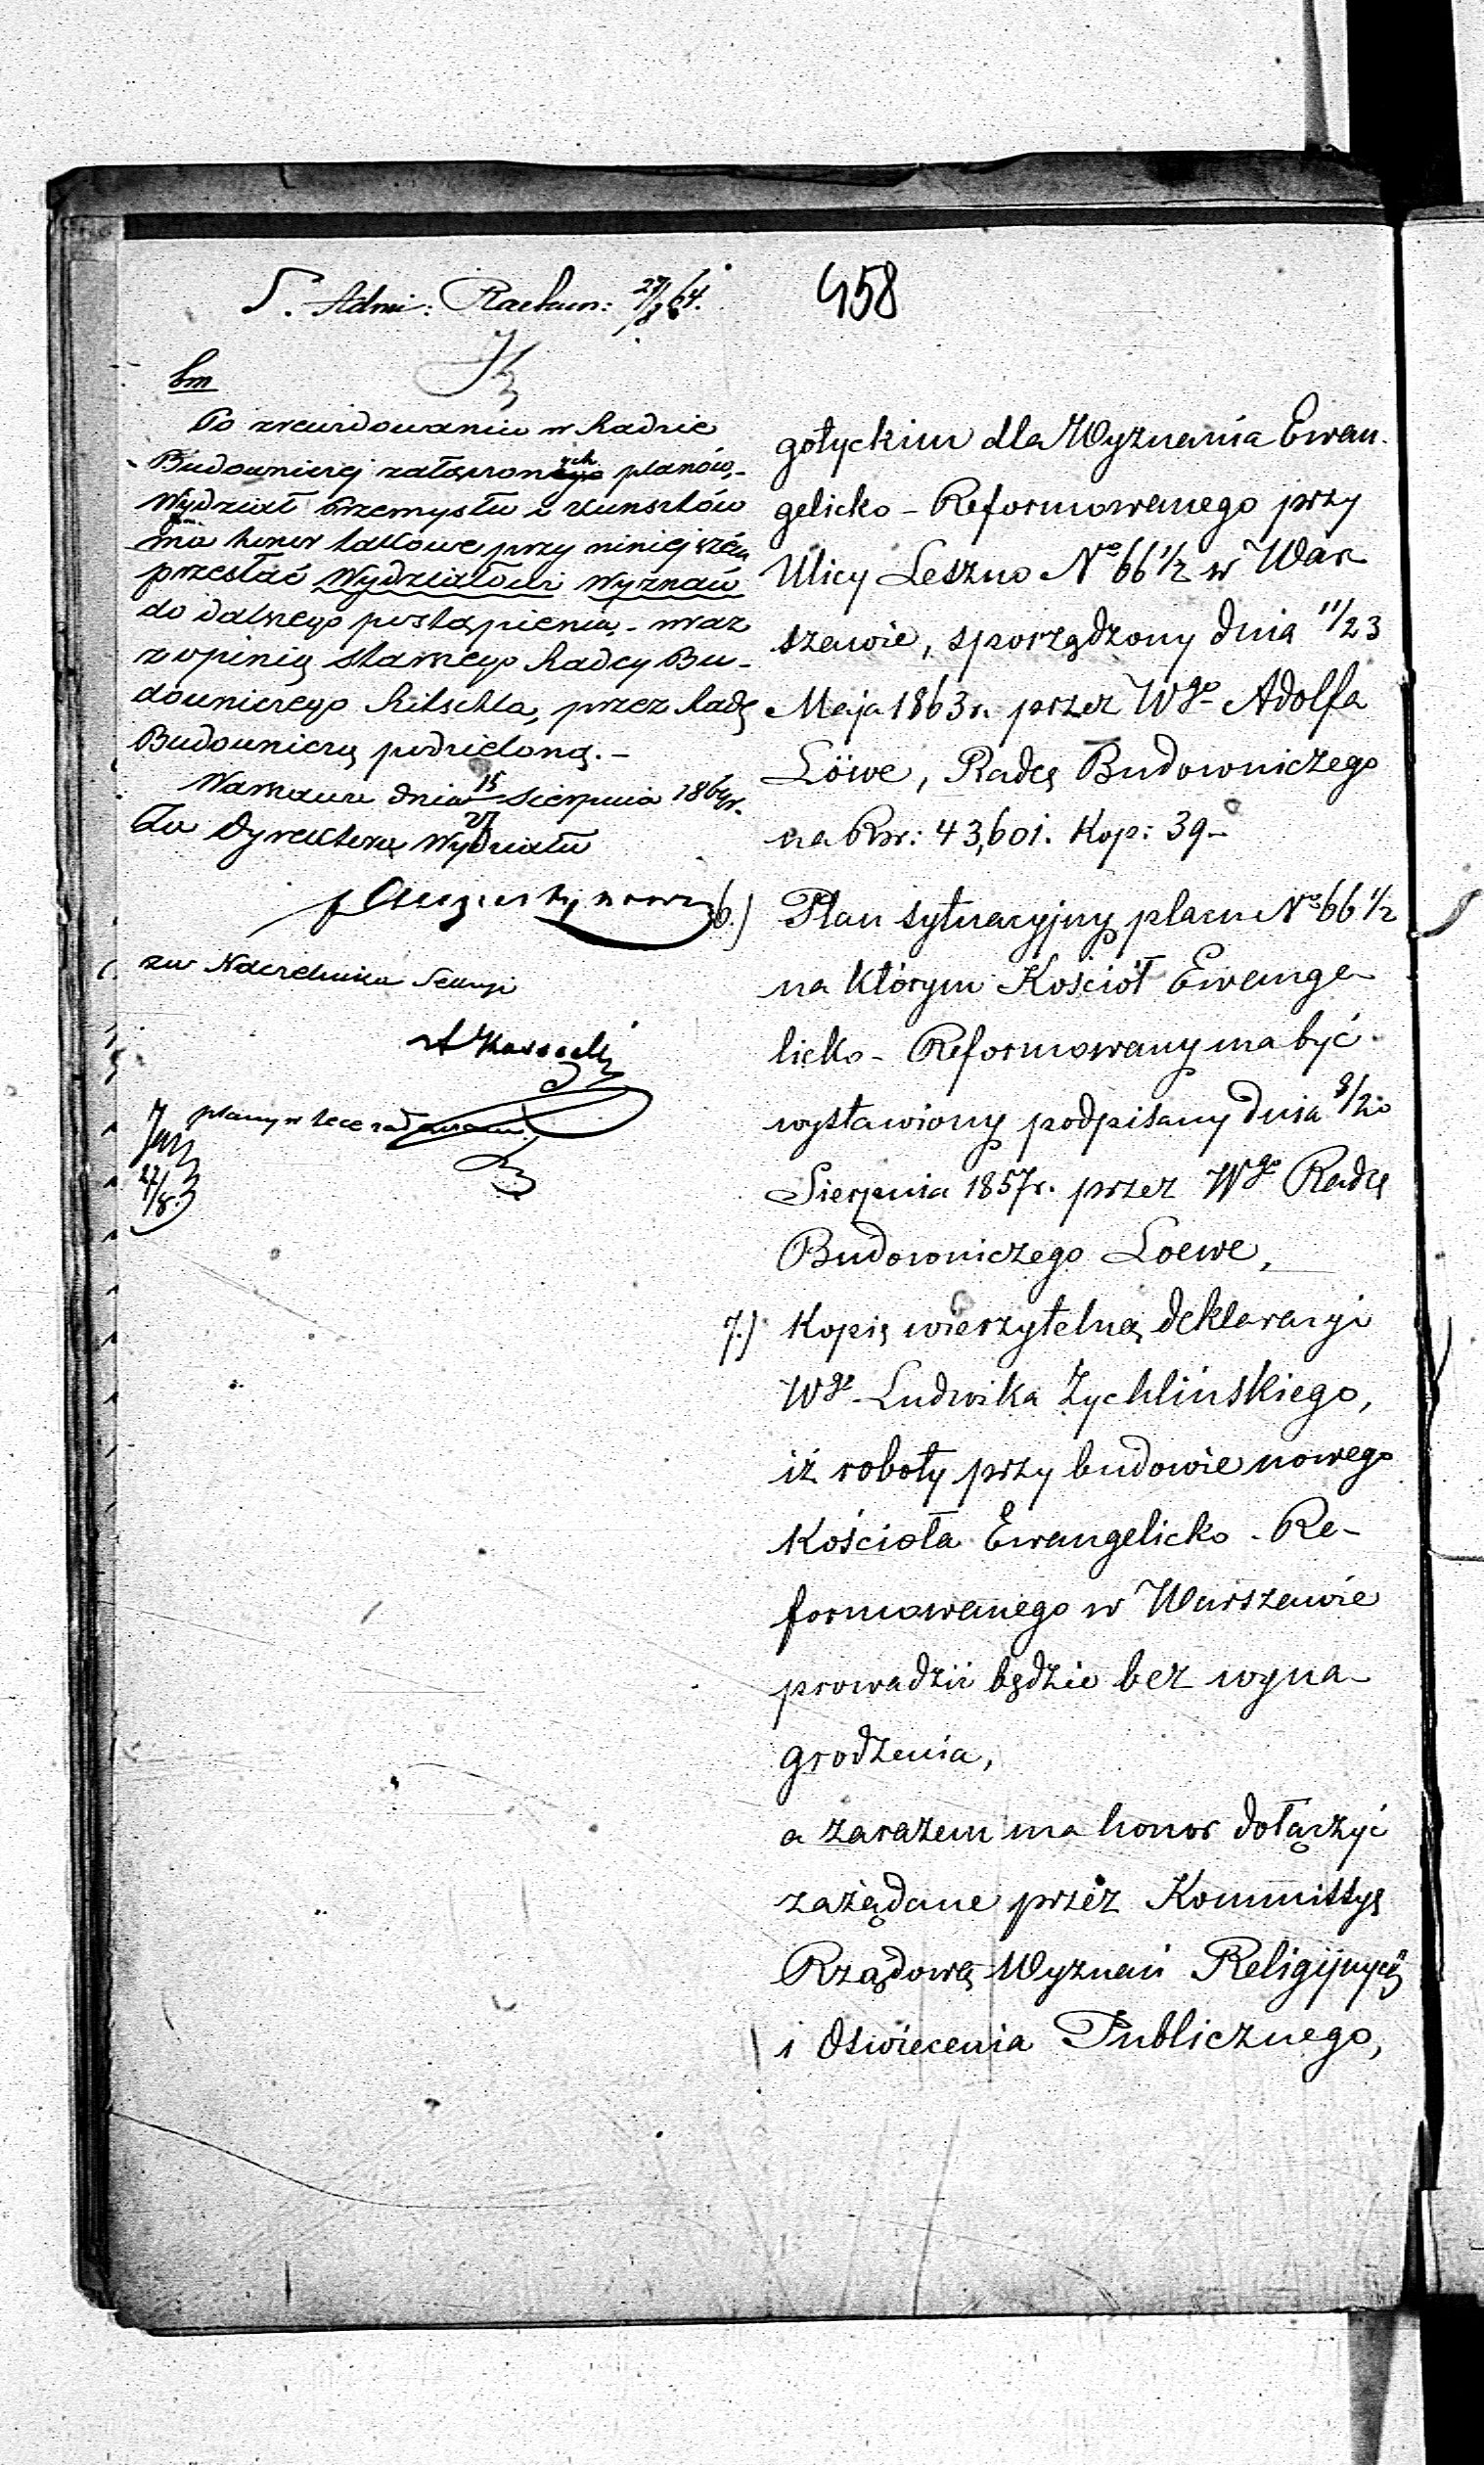 S. Admi: Rachun: 27/8 64.
458
bm
Po zrewidowaniu w Radzie
Budowniczej załączonych planów,
Wydział Przemysłu i Kunsztów
ma honor takowe przy niniejszém
przesłać Wydziałowi Wyznań
do dalszego postąpienia, wraz
z opinią starszego Radcy Bu-
downiczego Ritschla, przez Radę
Budowniczą podzieloną. -
Warszawa dnia 15/27 Sierpnia 1864 r.
Za Dyrektora Wydziału
za Naczelnika Sekcyi
plany w tece
27/8.
gotyckim dla Wyznania Ewan-
gelicko - Reformowanego przy
Ulicy Leszno No 66 1/2 w War
szawie, sporządzony dnia 11/23
Maja 1863 r. przez Wgo Adolfa
Löwe, Radcę Budowniczego
na Rsr: 43,601. Kop: 39 -
6.) Plan sytuacyjny placu No 66 1/2
na którym Kościół Ewange-
licko - Reformowany ma być
wystawiony podpisany dnia 8/20
Sierpnia 1857 r. przez Wgo Radcę
Budowniczego Loewe,
7.) Kopię wierzytelną deklaracyi
Wgo Ludwika Żychlińskiego,
iż roboty przy budowie nowego
Kościoła Ewangelicko - Re-
formowanego w Warszawie
prowadzić będzie bez wyna-
grodzenia,
a zarazem ma honor dołączyć
zażądane przez Kommissyę
Rządową Wyznań Religijnych
i Oświecenia Publicznego,